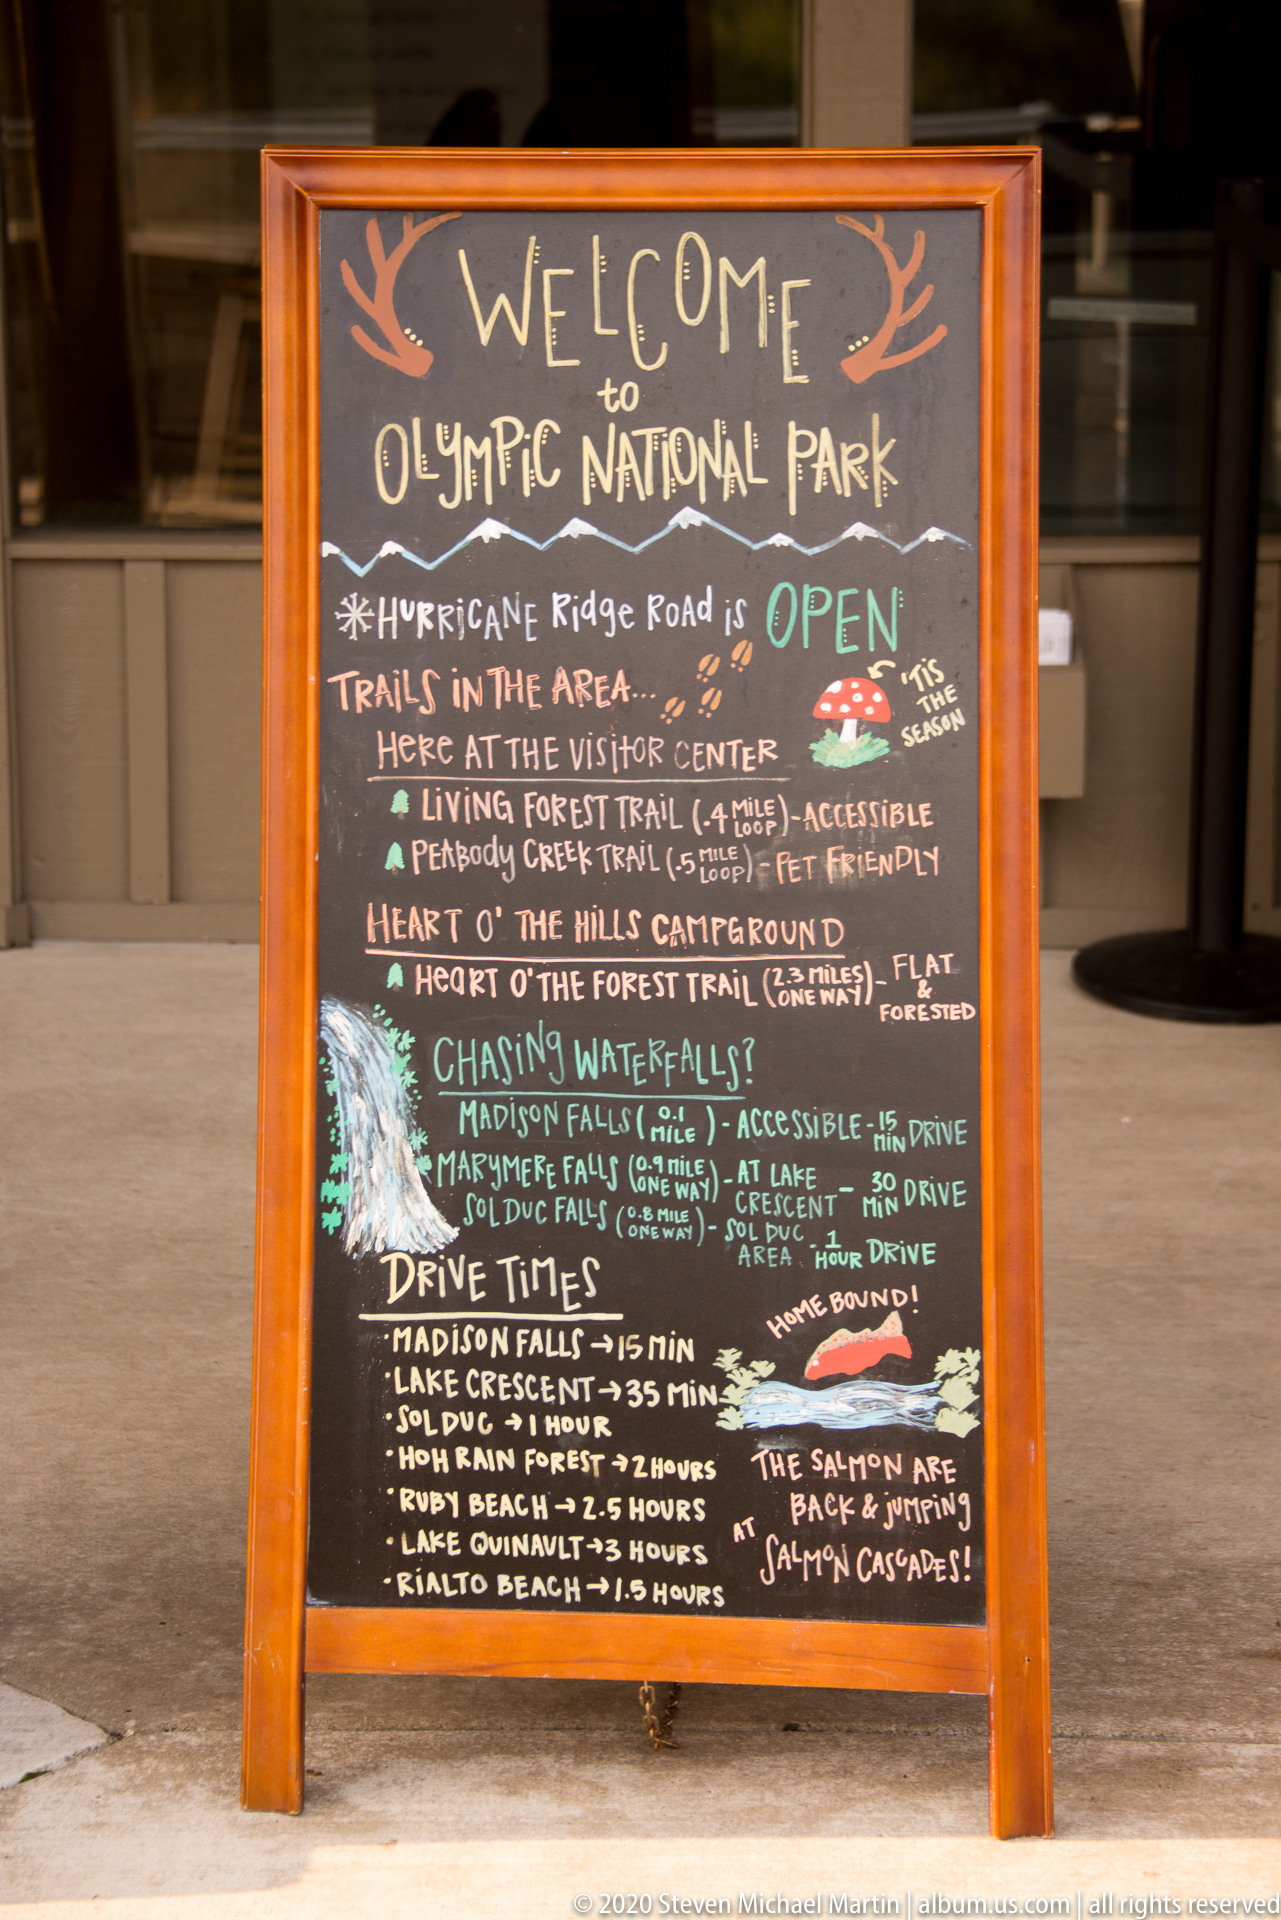 WELCOME
to
OLYMPIC NATIONAL PARK
HURRICANE Ridge ROAD is OPEN
TRAILS IN THE AREA...
'TIS
THE
SEASON
HERE AT THE VISITOR CENTER
LIVING FOREST TRAIL (.4 MILE LOOP) - ACCESSIBLE
PEABODY CREEK TRAIL (.5 MILE LOOP) - PET FRIENDLY
HEART O' THE HILLS CAMPGROUND
HEART O' THE FOREST TRAIL (2.3 MILES ONE WAY) - FLAT & FORESTED
CHASING WATERFALLS?
MADISON FALLS (0.1 MILE) - ACCESSIBLE - 15 MIN DRIVE
MARYMERE FALLS (0.9 MILE ONE WAY) - AT LAKE CRESCENT - 30 MIN DRIVE
SOL DUC FALLS (0.8 MILE ONE WAY) - SOL DUC AREA - 1 HOUR DRIVE
DRIVE TIMES
• MADISON FALLS → 15 MIN
• LAKE CRESCENT → 35 MIN
• SOL DUC → 1 HOUR
• HOH RAIN FOREST → 2 HOURS
• RUBY BEACH → 2.5 HOURS
• LAKE QUINAULT → 3 HOURS
• RIALTO BEACH → 1.5 HOURS
HOME BOUND!
THE SALMON ARE
BACK & JUMPING
AT
SALMON CASCADES!
© 2020 Steven Michael Martin | album.us.com | all rights reserved